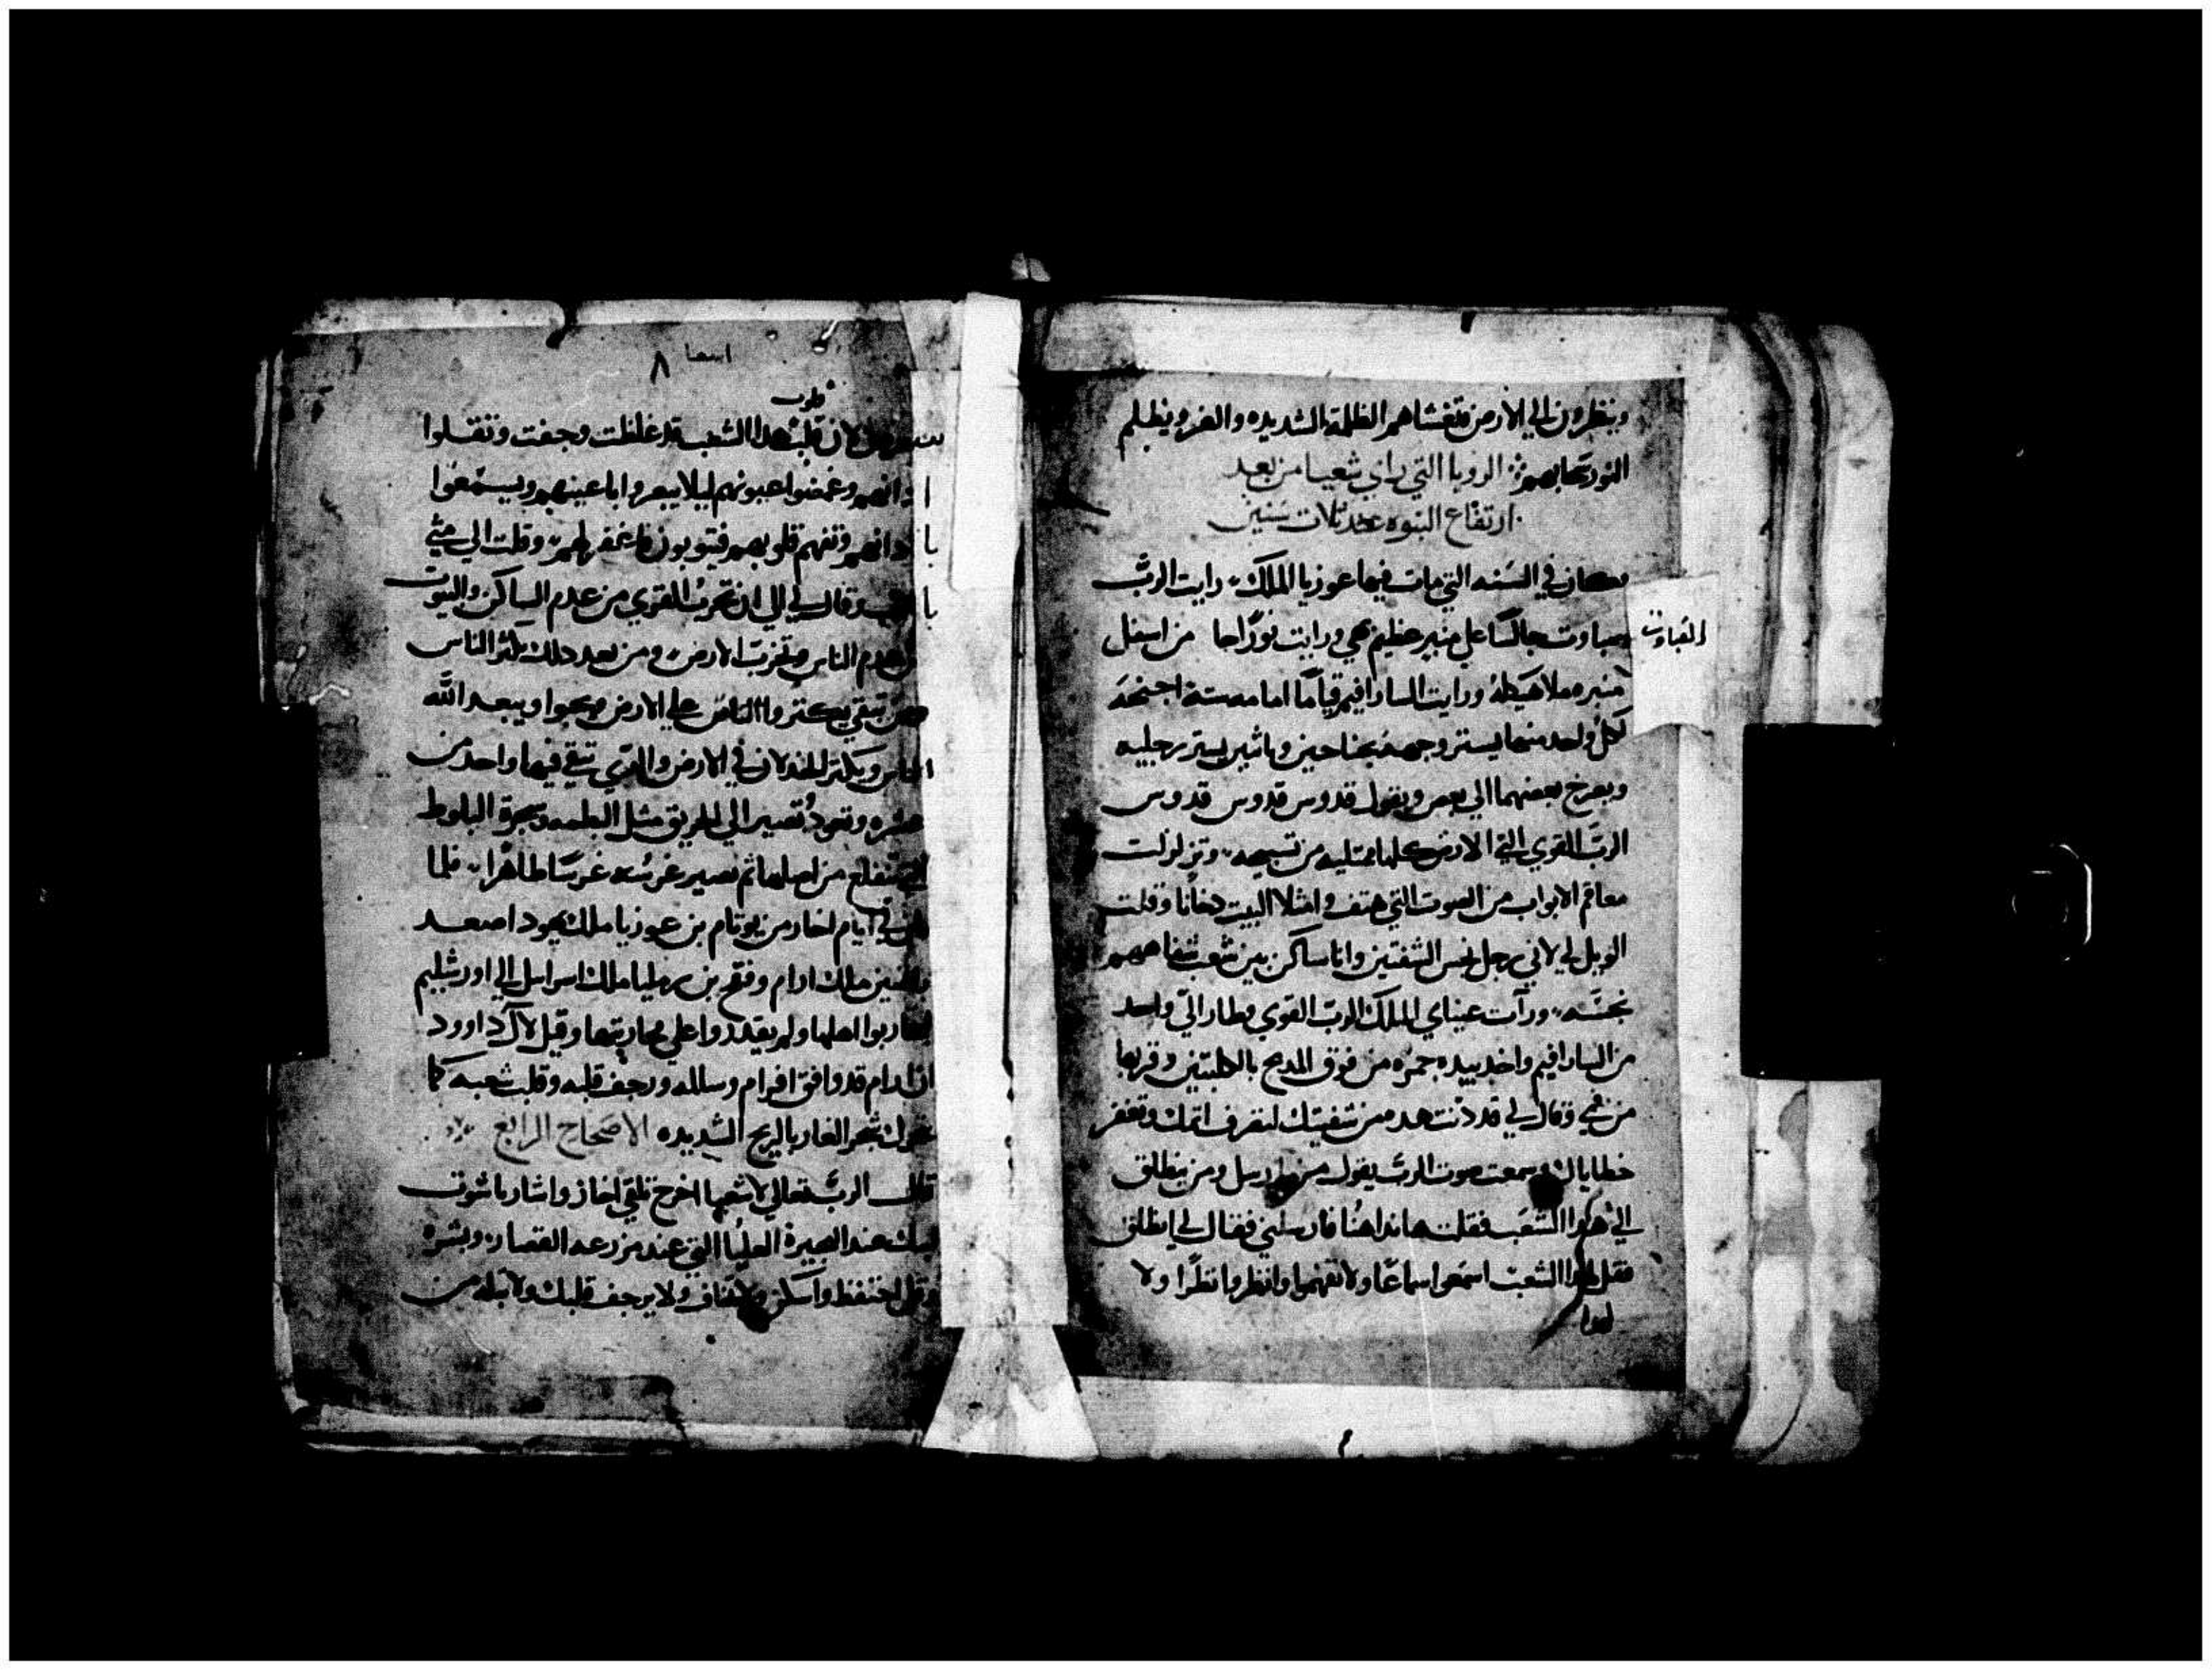 وينظرون الي الارض فتغشاهم الظلمة الشديده والغم ويظلم
النور بضبابهم الرويا التي راي شعيا من بعد
ارتفاع النبوه عنه ثلاث سنين
وكان في السنه التي مات فيها عوزيا الملك رايت الرب
صباوت جالسًا علي منبر عظيم بهي ورايت نورًا من اسفل
الصباوت
منبره ملا هيكله ورايت السارافيم قيامًا امامه ستة اجنحة
لكل واحد منهما يستر وجهه بجناحين وباثنين يستر رجليه
ويصرخ بعضهما الي بعض ويقول قدوس قدوس قدوس
الربّ القوي التي الارض كلها ممتليه من تسبيحه وتزلزلت
معاقم الابواب من الصوت التي هتف وامتلا البيت دخانًا وقلت
الويل لي لاني رجل نجس الشفتين وانا ساكن بين شعب شفاههم
نجسّه ورأت عيناي الملك الرب القوي وطار اليّ واحد
من السارافيم واخد بيده جمره من فوق المدبح بالكلبتين وقربها
من فمي وقال لي قد دنت هده من شفتيك لتصرف اتمك وتغفر
خطاياك وسمعت صوت الرب يقول من ارسل ومن ينطلق
الي هدا الشعب فقلت هاندا هنا فارسلني فقال لي انطلق
فقل لهدا الشعب اسمعوا سماعًا ولا تفهموا وانظروا نظرًا ولا
لهدا
اشعيا ٨
قلوب
لان قلب هدا الشعب قد غلظت وجفت وتقلوا
ادانهم وغمضوا عيونهم ليلا يبصروا باعينهم ويسمعوا
بادانهم وتفهم قلوبهم فيتوبون فاغفر لهم وقلت الي متي
يا رب وقال لي الي ان تخرب القوي من عدم الساكن والبيوت
من عدم الناس وتخرب الارض ومن بعد دلك يكثر الناس
تبقي يكتروا الناس علي الارض ويبعد الله
الناس ويكثر الخدلان في الارض والدي تبقي فيها واحد من
عشره وتعود تصير الي الحريق مثل البطمه وشجرة البلوط
التي تنقلع من اصلها ثم تصير غرسه غرسًا طاهرًا فلما
كان في ايام احاز من يوتام بن عوزيا ملك يهودا صعد
ملك ادام وفقح بن رمليا ملك اسراييل الي اورشليم
ليحاربوا اهلها ولم يقدروا علي محاربتها وقيل لال داوود
ان ادام قد وافق افرام وسالمه ورجف قلبه وقلب شعبه كما
تحرك شجر الغار بالريح الشديده الاصحاح الرابع
قال الرب تعالي لاشعيا اخرج تلقي احاز واشار ياشوب
ابنك عند البحيرة العليا التي عند مزرعه القصار وبشره
وقل احتفظ واسكن ولا تخاف ولا يرجف قلبك ولا تبله من